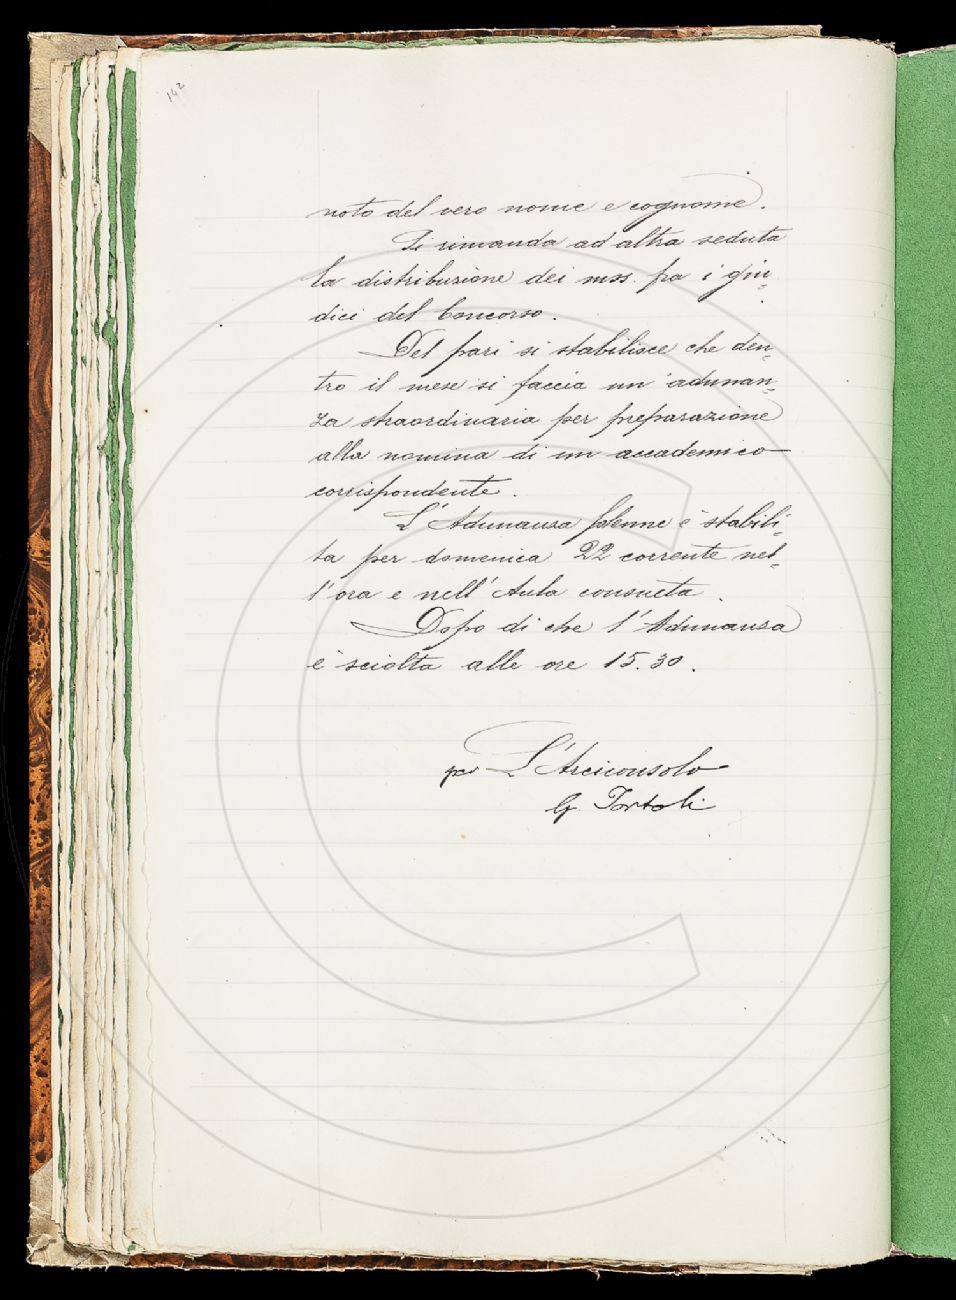 142
noto del vero nome e cognome.
Si rimanda ad altra seduta
la distribuzione dei mss. fra i giu-
dici del Concorso.
Del pari si stabilisce che den-
tro il mese si faccia un'adunan-
za straordinaria per preparazione
alla nomina di un accademico
corrispondente.
L'Adunanza solenne è stabili-
ta per domenica 22 corrente nel-
l'ora e nell'Aula consueta.
Dopo di che l'Adunanza
è sciolta alle ore 15.30.
per L'Arciconsolo
G. Tortoli